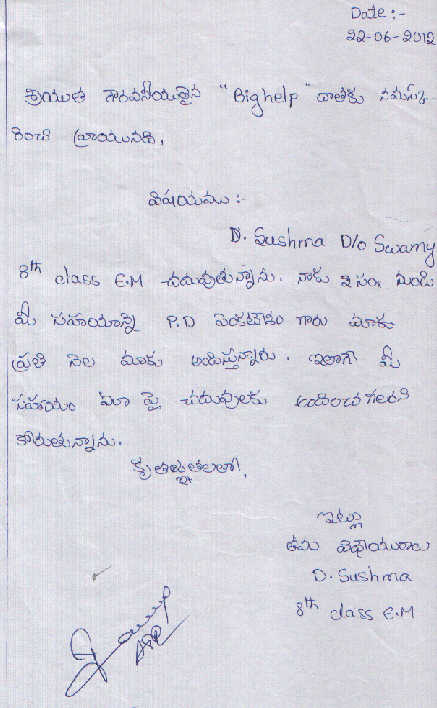 Date:-
22-06-2012
శ్రీయుత గౌరవనీయులైన "Bighelp" దాతకు నమస్క
రించి వ్రాయునది,
విషయము:-
D. Sushma D/o Swamy
8th class E.M చదువుతున్నాను. నాకు 2 సం. నుండి
మీ సహాయాన్ని P.D వెంకటేశం గారు మాకు
ప్రతి నెల మాకు అందిస్తున్నారు. ఇలాగే మీ
సహాయం మా పై చదువులకు అందించగలరని
కోరుతున్నాను.
కృతజ్ఞతలతో!,
ఇట్లు
తమ విధేయురాలు
D. Sushma
8th class E.M